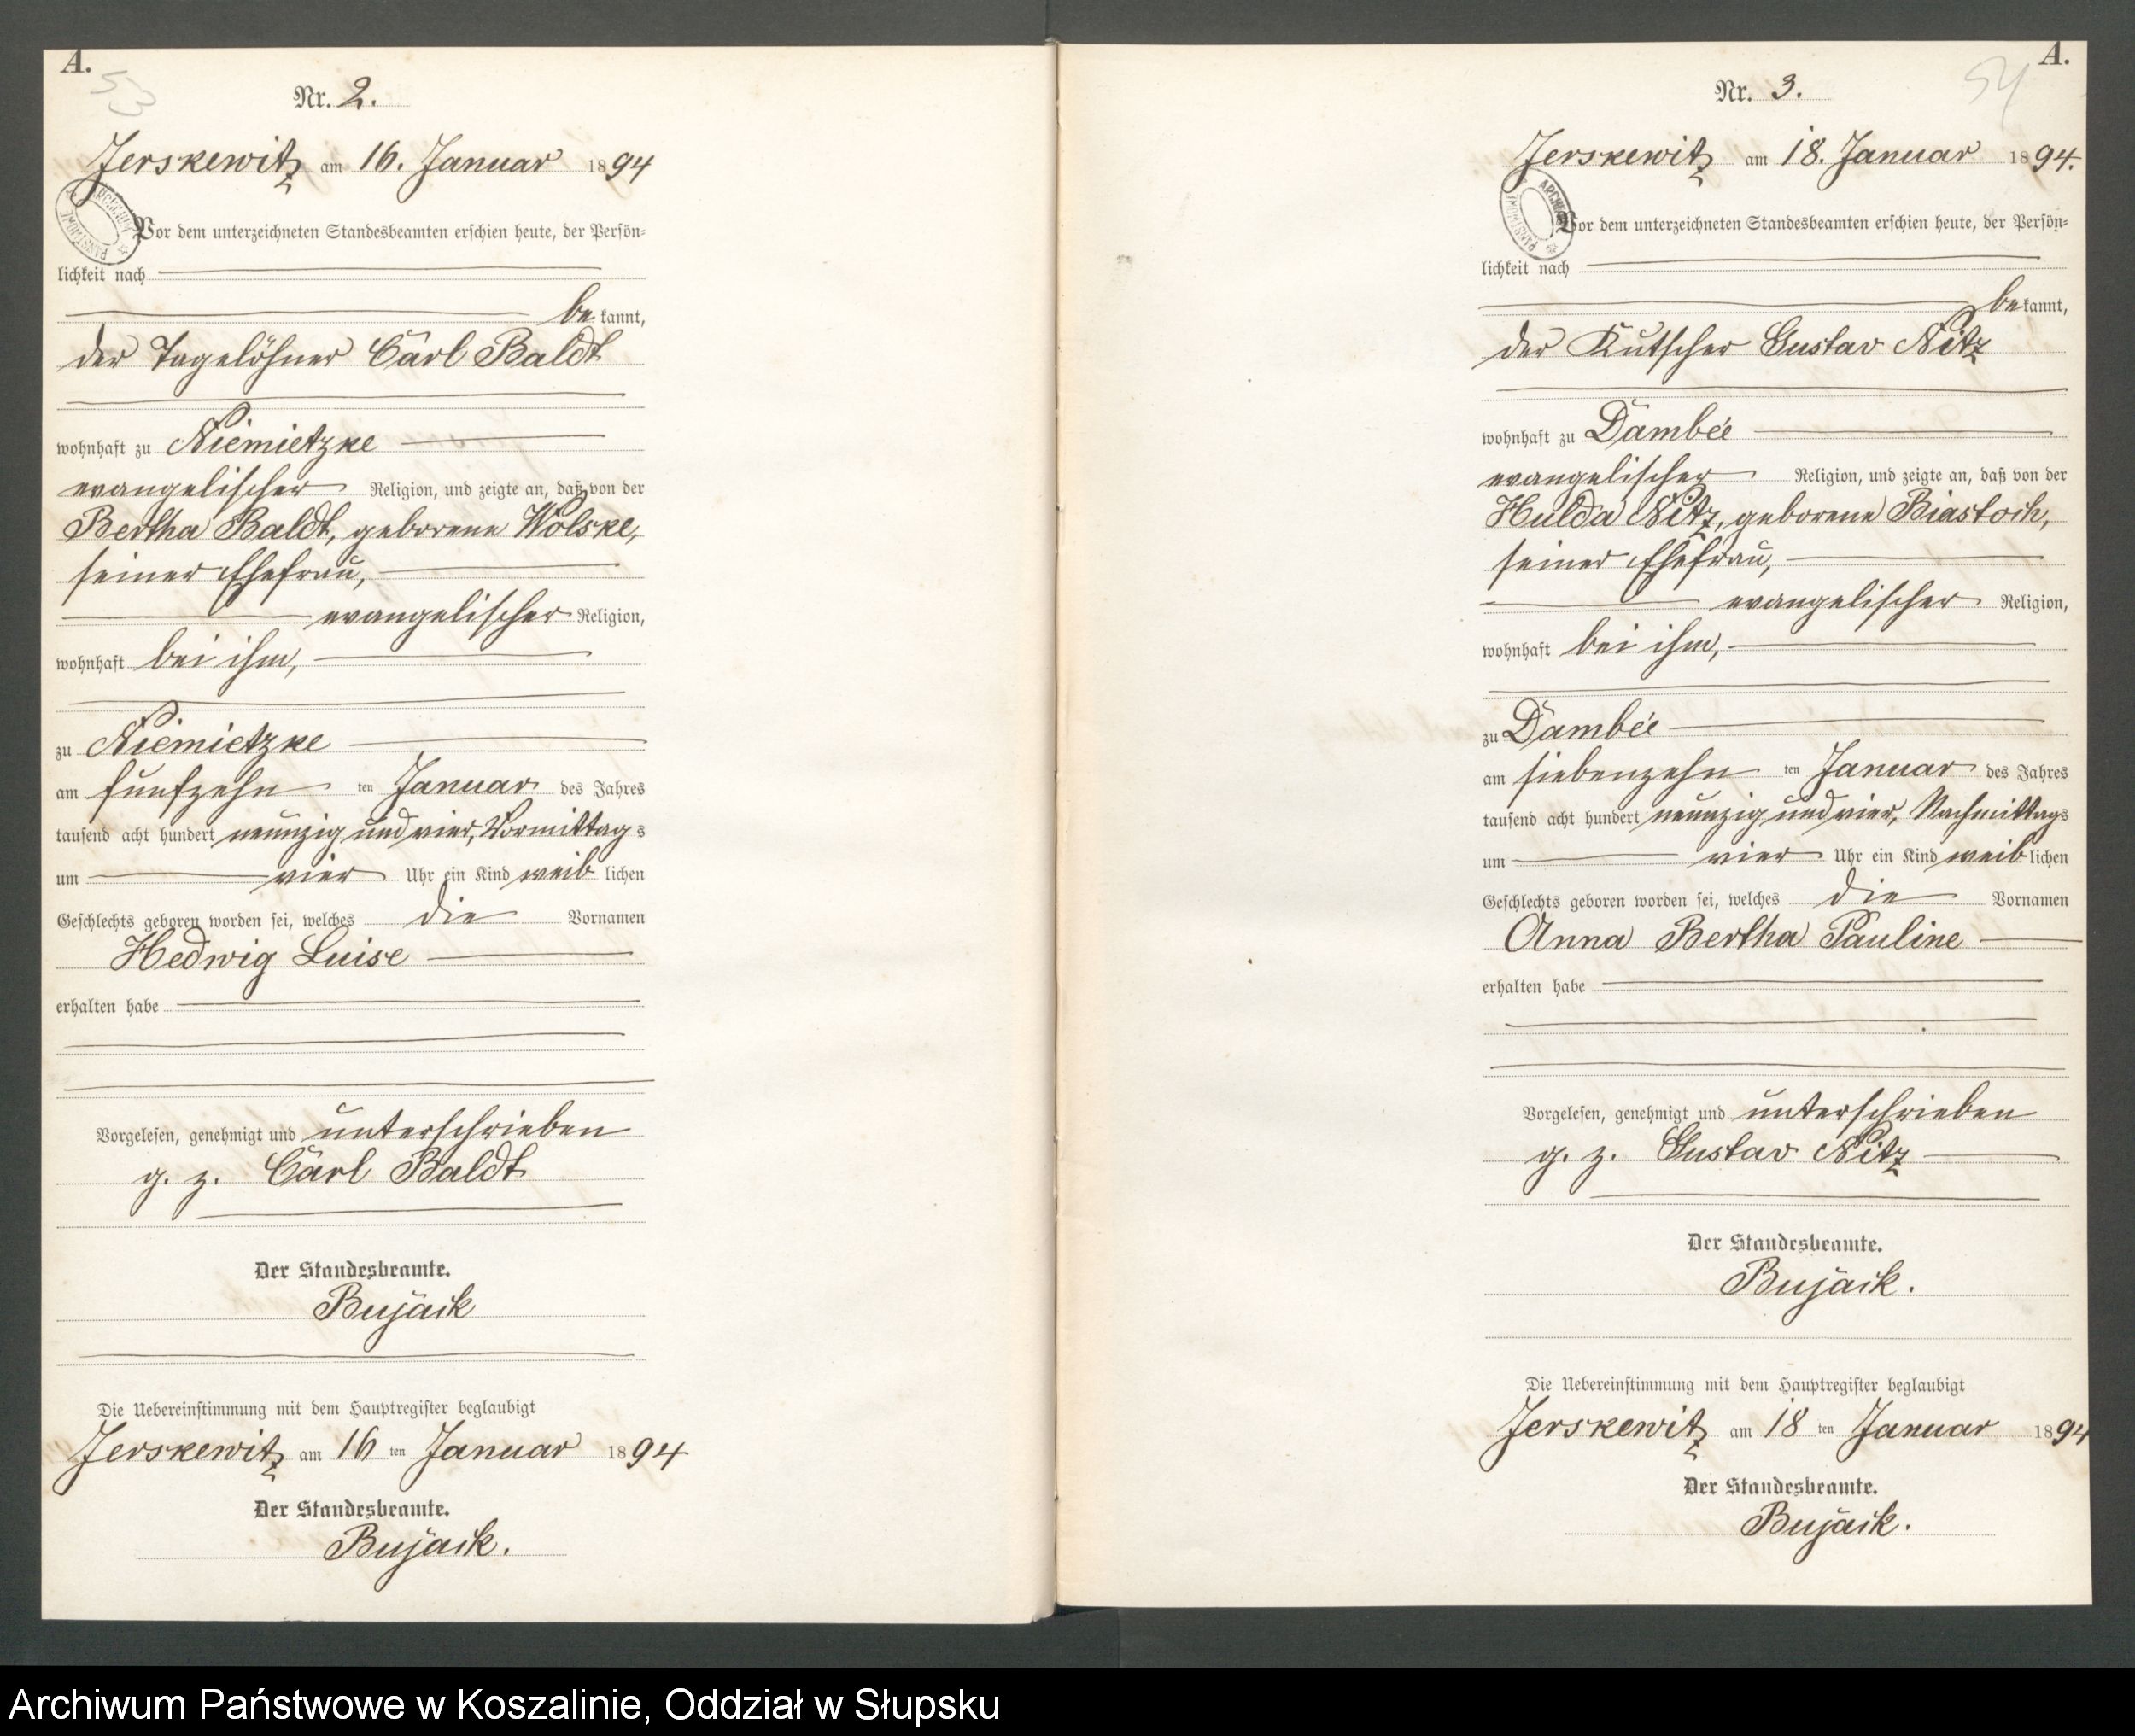 A.
53
Nr. 2.
Jerskewitz am 16. Januar 1894
Vor dem unterzeichneten Standesbeamten erschien heute, der Persön-
lichkeit nach
bekannt,
der Tagelöhner Carl Baldt
wohnhaft zu Niemietzke
evangelischer Religion, und zeigte an, daß von der
Bertha Baldt, geborene Wolske,
seiner Ehefrau,
evangelischer Religion,
wohnhaft bei ihm,
zu Niemietzke
am fünfzehn ten Januar des Jahres
tausend acht hundert neunzig und vier, Vormittags
um vier Uhr ein Kind weiblichen
Geschlechts geboren worden sei, welches die Vornamen
Hedwig Luise
erhalten habe
Vorgelesen, genehmigt und unterschrieben
g. z. Carl Baldt
Der Standesbeamte.
Bujack
Die Uebereinstimmung mit dem Hauptregister beglaubigt
Jerskewitz am 16 ten Januar 1894
Der Standesbeamte.
Bujack.
A.
54
Nr. 3.
Jerskewitz am 18. Januar 1894.
Vor dem unterzeichneten Standesbeamten erschien heute, der Persön-
lichkeit nach
bekannt,
der Kutscher Gustav Nitz
wohnhaft zu Dambée
evangelischer Religion, und zeigte an, daß von der
Hulda Nitz, geborene Biastoch,
seiner Ehefrau,
evangelischer Religion,
wohnhaft bei ihm,
zu Dambée
am siebenzehn ten Januar des Jahres
tausend acht hundert neunzig und vier, Nachmittags
um vier Uhr ein Kind weiblichen
Geschlechts geboren worden sei, welches die Vornamen
Anna Bertha Pauline
erhalten habe
Vorgelesen, genehmigt und unterschrieben
g. z. Gustav Nitz
Der Standesbeamte.
Bujack.
Die Uebereinstimmung mit dem Hauptregister beglaubigt
Jerskewitz am 18 ten Januar 1894
Der Standesbeamte.
Bujack.
Archiwum Państwowe w Koszalinie, Oddział w Słupsku